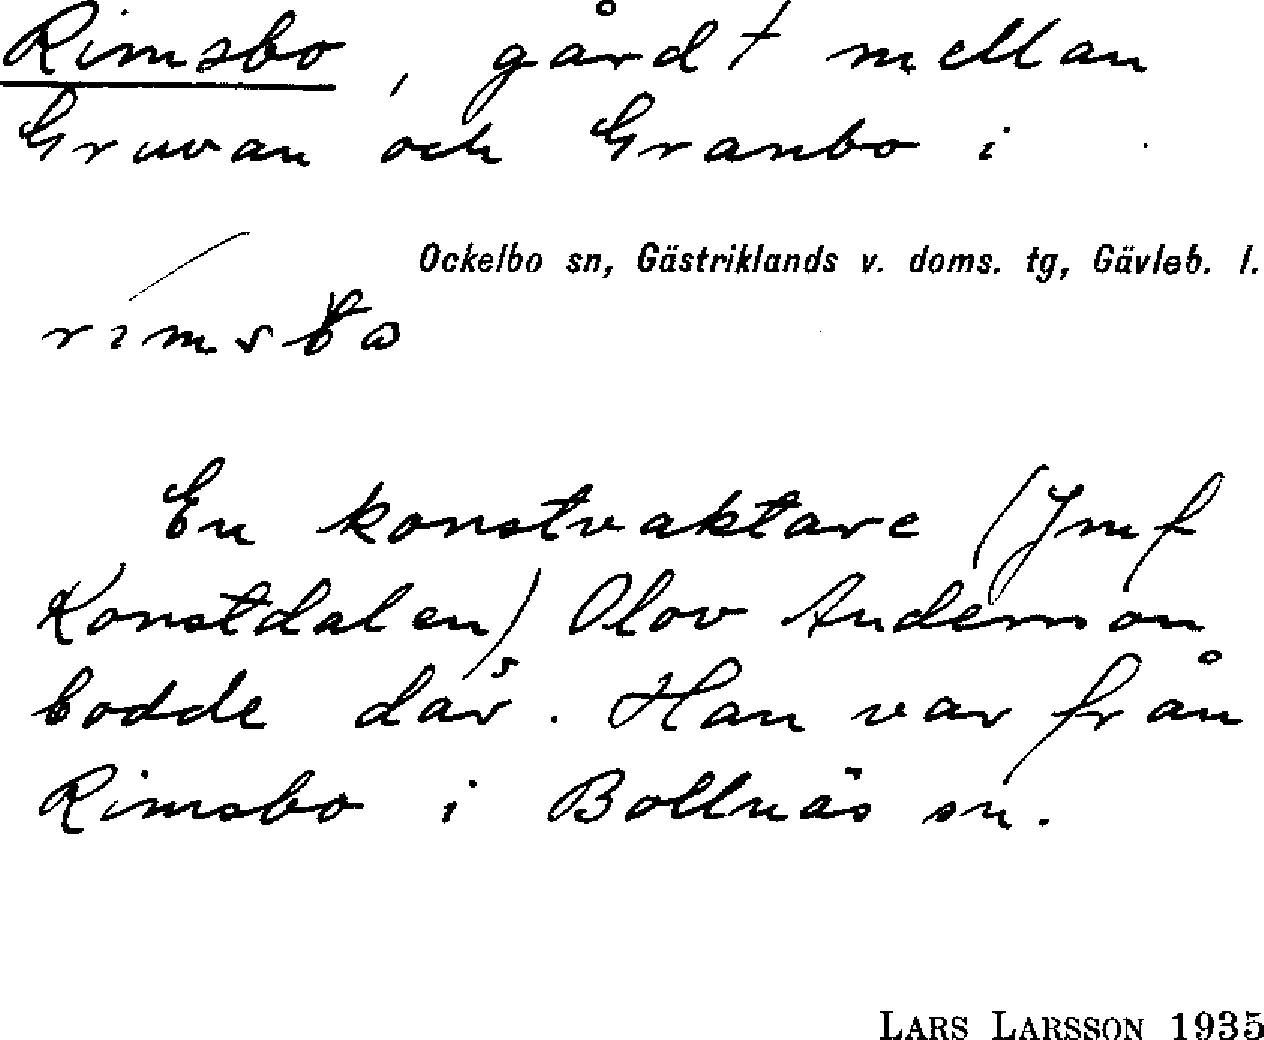 Rimsbo, gård † mellan
Gruvan och Granbo i
Ockelbo sn, Gästriklands v. doms. tg, Gävleb. l.
En konstvaktare (Jmf
Konstdalen) Olov Anderson
bodde där. Han var från
Rimsbo i Bollnäs sn.
LARS LARSSON 1935